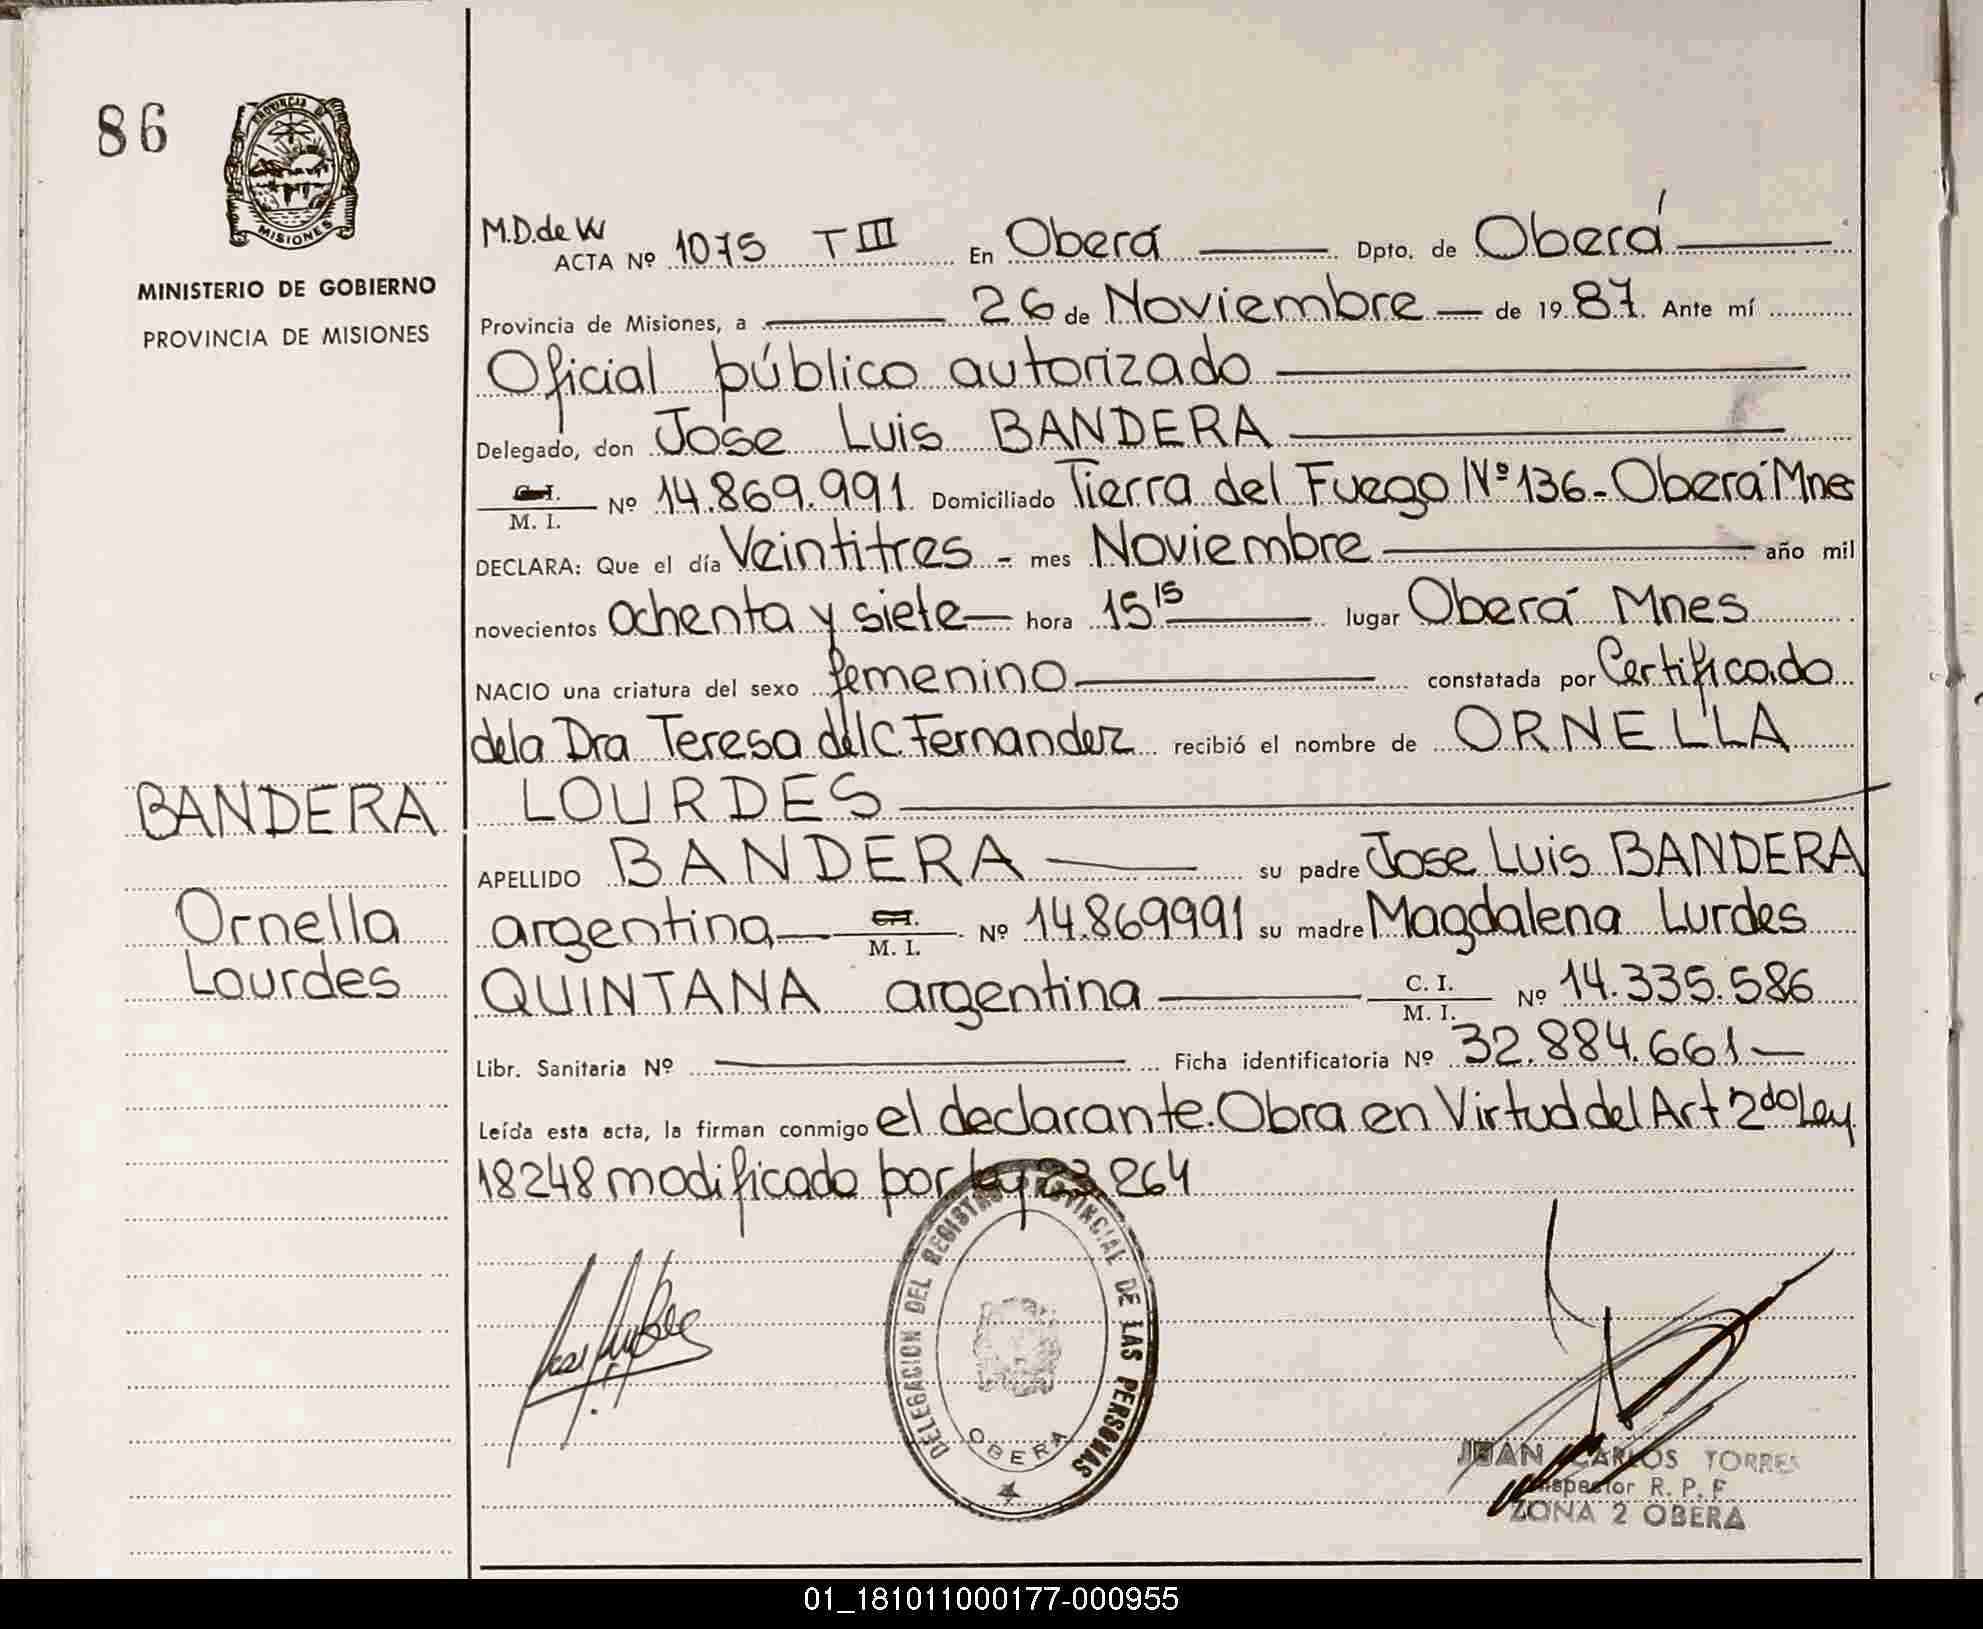 86
PROVINCIA DE
MISIONES
MINISTERIO DE GOBIERNO
PROVINCIA DE MISIONES
M.D.de W
ACTA Nº 1075 T III En Oberá Dpto. de Oberá
Provincia de Misiones, a 26 de Noviembre de 1987. Ante mí
Oficial público autorizado
Delegado, don Jose Luis BANDERA
C.I. M. I. Nº 14.869.991 Domiciliado Tierra del Fuego Nº 136 - Oberá Mnes
DECLARA: Que el día Veintitres - mes Noviembre año mil
novecientos ochenta y siete hora 15 15 lugar Oberá Mnes
NACIO una criatura del sexo femenino constatada por Certificado
dela Dra Teresa del C. Fernandez recibió el nombre de ORNELLA
LOURDES
BANDERA
APELLIDO BANDERA su padre Jose Luis BANDERA
Ornella
argentina M. I. Nº 14.869991 su madre Magdalena Lurdes
Lourdes
QUINTANA argentina C. I. M. I. Nº 14.335.586
Libr. Sanitaria Nº Ficha identificatoria Nº 32.884.661
Leída esta acta, la firman conmigo el declarante. Obra en Virtud del Art 2do Ley
18248 modificado por ley 23.264
DELEGACION DEL REGISTRO PROVINCIAL DE LAS PERSONAS
OBERA
JUAN CARLOS TORRES
Inspector R. P. F
ZONA 2 OBERA
01_181011000177-000955